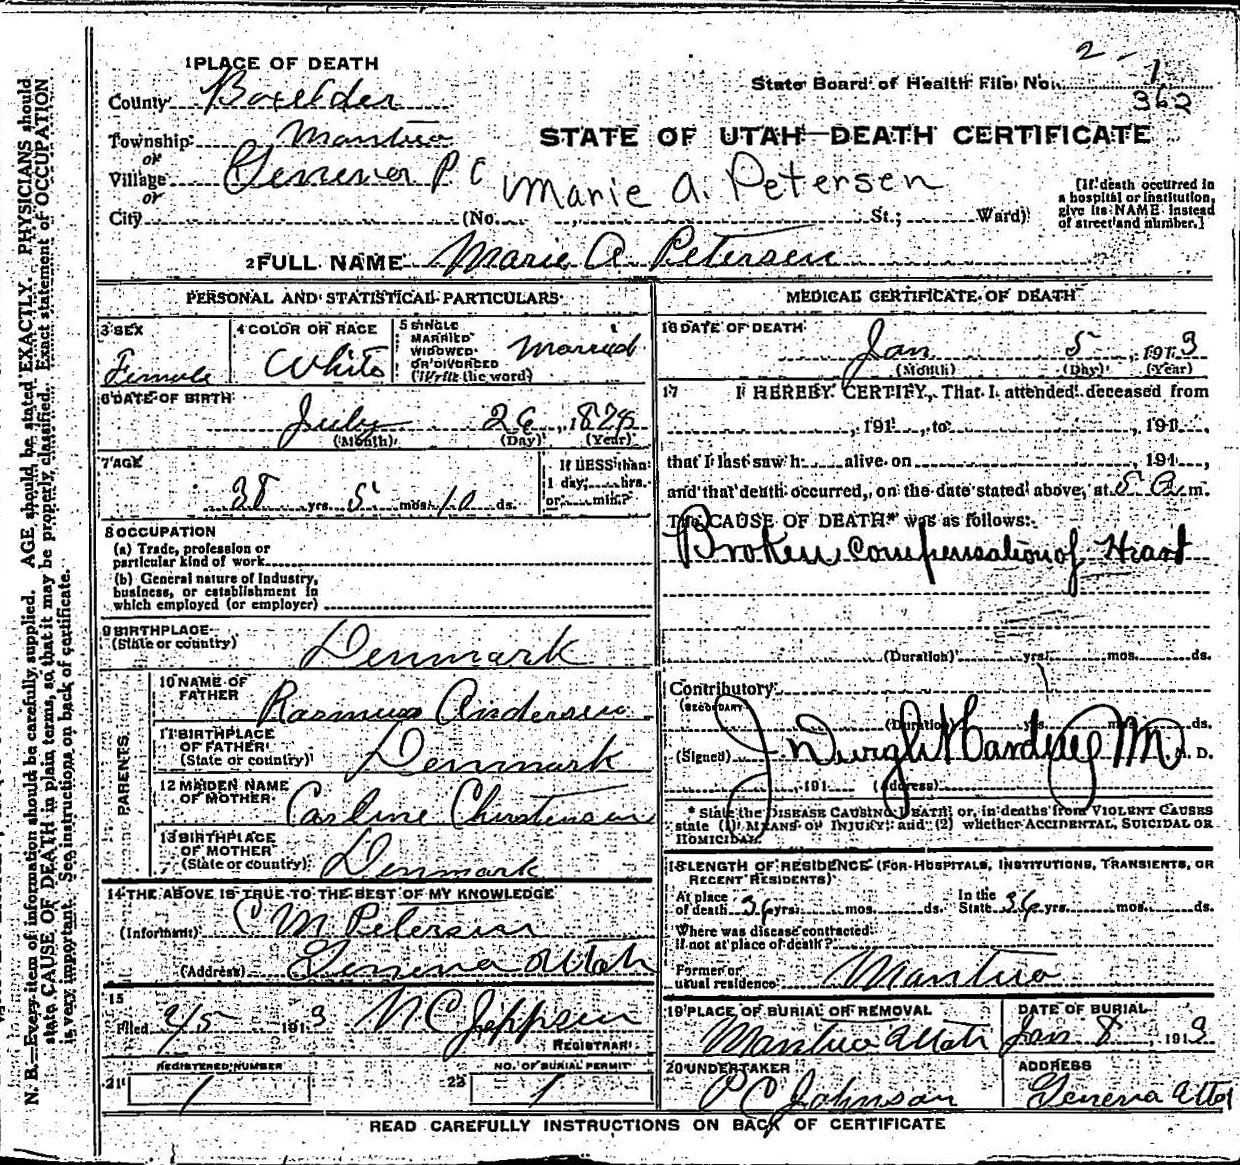 2 -
1
362
1 PLACE OF DEATH
State Board of Health File No.
County Boxelder
STATE OF UTAH—DEATH CERTIFICATE
Township Mantua
or
Village Geneva P C
Marie A. Petersen
or
City (No. St.; Ward)
[If death occurred in
a hospital or institution,
give its NAME instead
of street and number.]
2 FULL NAME Marie A. Petersen
PERSONAL AND STATISTICAL PARTICULARS
3 SEX
Female
4 COLOR OR RACE
White
5 SINGLE
MARRIED
WIDOWED
OR DIVORCED
(Write the word)
Married
6 DATE OF BIRTH
July 26, 187
(Month) (Day) (Year)
7 AGE
38 yrs. 5 mos. 10 ds.
If LESS than
1 day, hrs.
or min.?
8 OCCUPATION
(a) Trade, profession or
particular kind of work
(b) General nature of industry,
business, or establishment in
which employed (or employer)
9 BIRTHPLACE
(State or country)
Denmark
PARENTS
10 NAME OF
FATHER
Rasmus Andersen
11 BIRTHPLACE
OF FATHER
(State or country)
Denmark
12 MAIDEN NAME
OF MOTHER
Carline Christensen
13 BIRTHPLACE
OF MOTHER
(State or country)
Denmark
14 THE ABOVE IS TRUE TO THE BEST OF MY KNOWLEDGE
(Informant) C M Petersen
(Address) Geneva Utah
15
Filed /5 1913 N C Jeppsen
REGISTRAR
REGISTERED NUMBER
21 1
NO. OF BURIAL PERMIT
22 1
MEDICAL CERTIFICATE OF DEATH
16 DATE OF DEATH
Jan 5, 1913
(Month) (Day) (Year)
17 I HEREBY CERTIFY, That I attended deceased from
, 191 , to , 191 ,
that I last saw h alive on , 191 ,
and that death occurred, on the date stated above, at 5 a m.
The CAUSE OF DEATH* was as follows:
Broken Compensation of Heart
(Duration) yrs. mos. ds.
Contributory
(SECONDARY)
(Duration) yrs. mos. ds.
(Signed) J Dwight Harding M. D.
, 191 (Address)
* State the DISEASE CAUSING DEATH; or, in deaths from VIOLENT CAUSES
state (1) MEANS OF INJURY; and (2) whether ACCIDENTAL, SUICIDAL OR
HOMICIDAL.
18 LENGTH OF RESIDENCE (FOR HOSPITALS, INSTITUTIONS, TRANSIENTS, OR
RECENT RESIDENTS)
At place
of death 36 yrs. mos. ds.
In the
State 36 yrs. mos. ds.
Where was disease contracted
if not at place of death?
Former or
usual residence Mantua
19 PLACE OF BURIAL OR REMOVAL
Mantua Utah
DATE OF BURIAL
Jan 8, 1913
20 UNDERTAKER
P C Johnson
ADDRESS
Geneva Utah
READ CAREFULLY INSTRUCTIONS ON BACK OF CERTIFICATE
N. B.—Every item of information should be carefully supplied. AGE should be stated EXACTLY. PHYSICIANS should
state CAUSE OF DEATH in plain terms, so that it may be properly classified. Exact statement of OCCUPATION
is very important. See instructions on back of certificate.